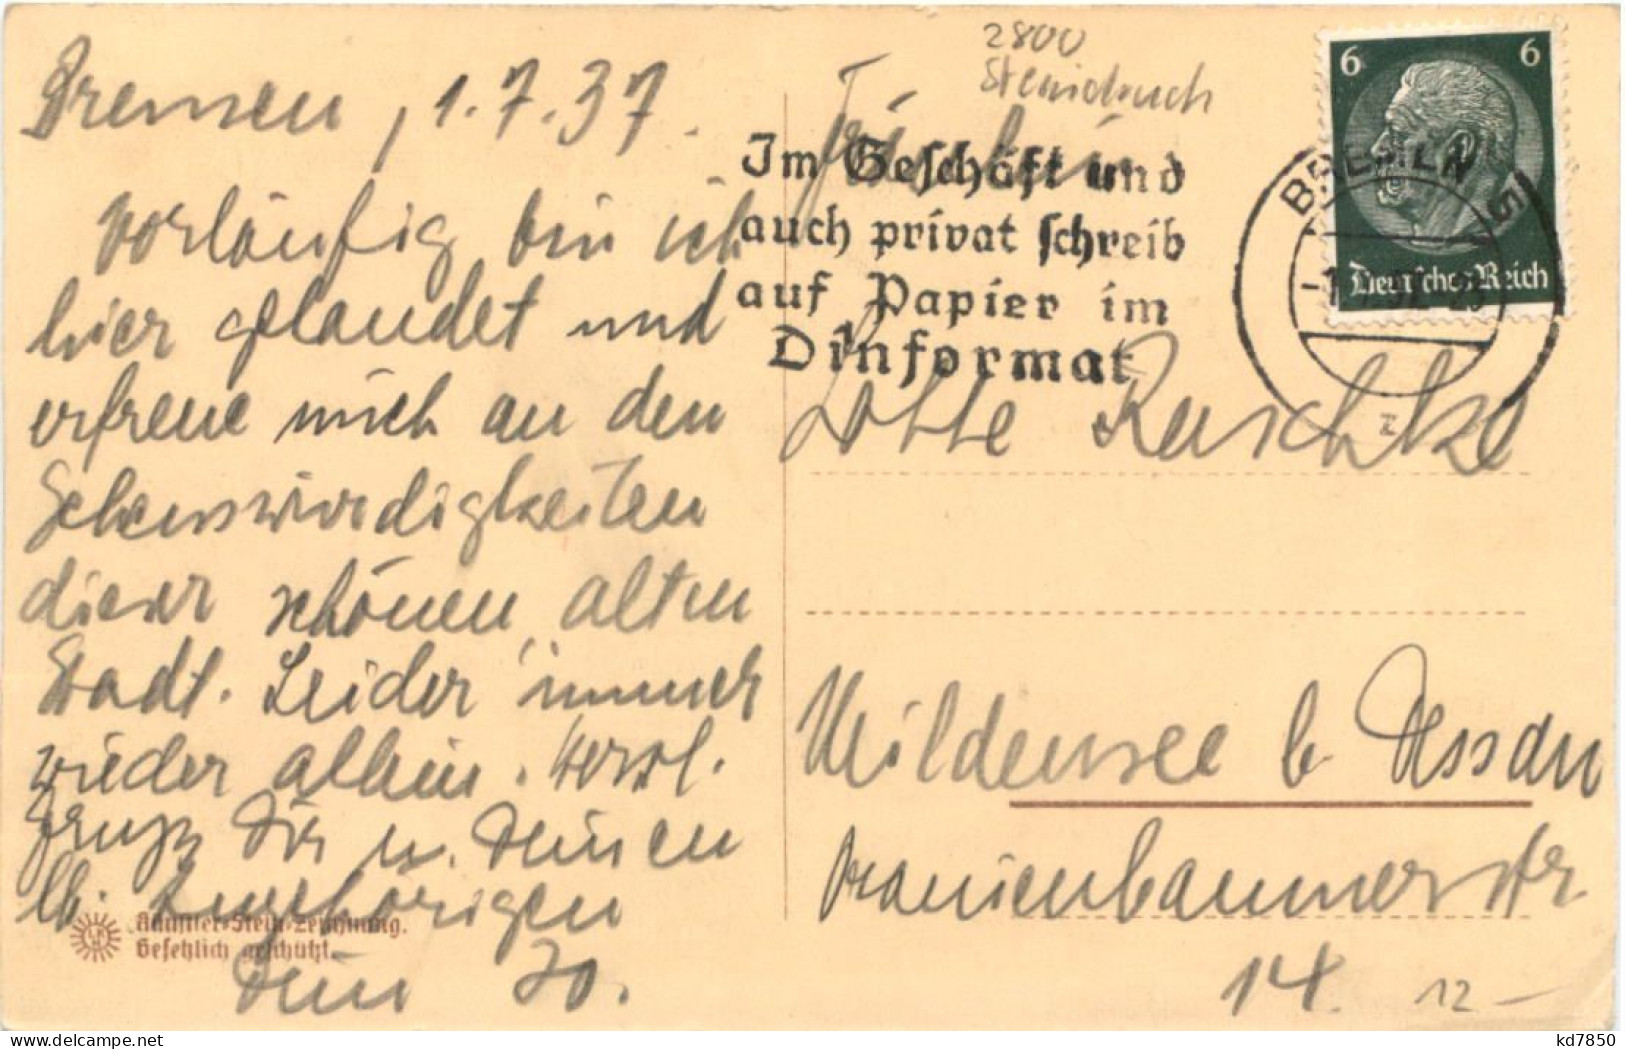 Bremen, 1.7.37.
Vorläufig bin ich
hier gelandet und
erfreue mich an den
Sehenswürdigkeiten
dieser schönen alten
Stadt. Leider immer
wieder allein. Herzl.
Gruß Dir u. Deinen
lb. Angehörigen
Dein Jo.
Künstler-Stein-Zeichnung.
Gesetzlich geschützt.
2800
Steindruck
Fräulein
Im Geschäft und
auch privat schreib
auf Papier im
Dinformat
6 6
Deutsches Reich
BREMEN 5
Lotte Raschke
z
Mildensee b. Dessau
Oranienbaumerstr
14.
12 -
kd7850